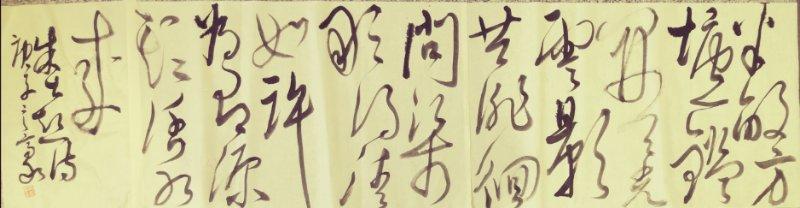 半畝方
塘一鑑
開天光
雲影
共徘徊
問渠
那得清
如許
為有源
頭活水
來
朱熹詩
庚子